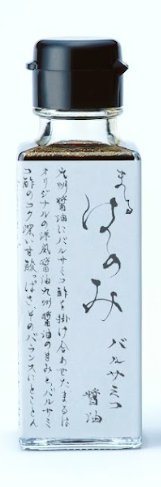 まるはのみ
バルサミコ
醤油
九州醤油にバルサミコ酢を掛け合せたまるは
オリジナルの洋風醤油九州醤油の甘みとバルサミ
コ酢のコク深い甘酸っぱさ、そのバランスにとことん